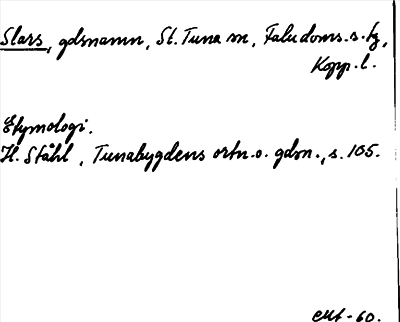 Slars, gdsnamn, St. Tuna sn, Falu doms. s. tg,
Kopp. l.
Etymologi.
H. Ståhl, Tunabygdens ortn. o. gdsn., s. 105.
-60.